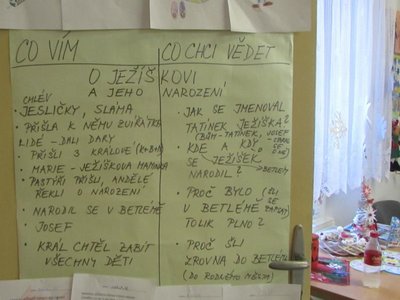 CO VÍM
CO CHCI VĚDET
O JEŽÍŠKOVI
A JEHO NAROZENÍ
CHLÉV
· JESLIČKY, SLÁMA
· PŘIŠLA K NĚMU ZVÍŘÁTKA
LIDÉ - DALI DARY
· PŘIŠLI 3 KRÁLOVÉ (K+B+M)
· MARIE - JEŽÍŠKOVA MAMINKA
· PASTÝŘI PŘIŠLI, ANDĚLÉ
ŘEKLI O NAROZENÍ
· NARODIL SE V BETLÉMĚ
· JOSEF
· KRÁL CHTĚL ZABÍT
VŠECHNY DĚTI
· JAK SE JMENOVAL
TATÍNEK JEŽÍŠKA?
(BŮH-TATÍNEK, JOSEF
· KDE A KDY
SE JEŽÍŠEK
NARODIL?
BETLÉM
· PROČ BYLO
V BETLÉMĚ
TOLIK PLNO?
· PROČ ŠLI
ZROVNA DO BETLÉMA
(DO RODNÉHO MĚSTA)